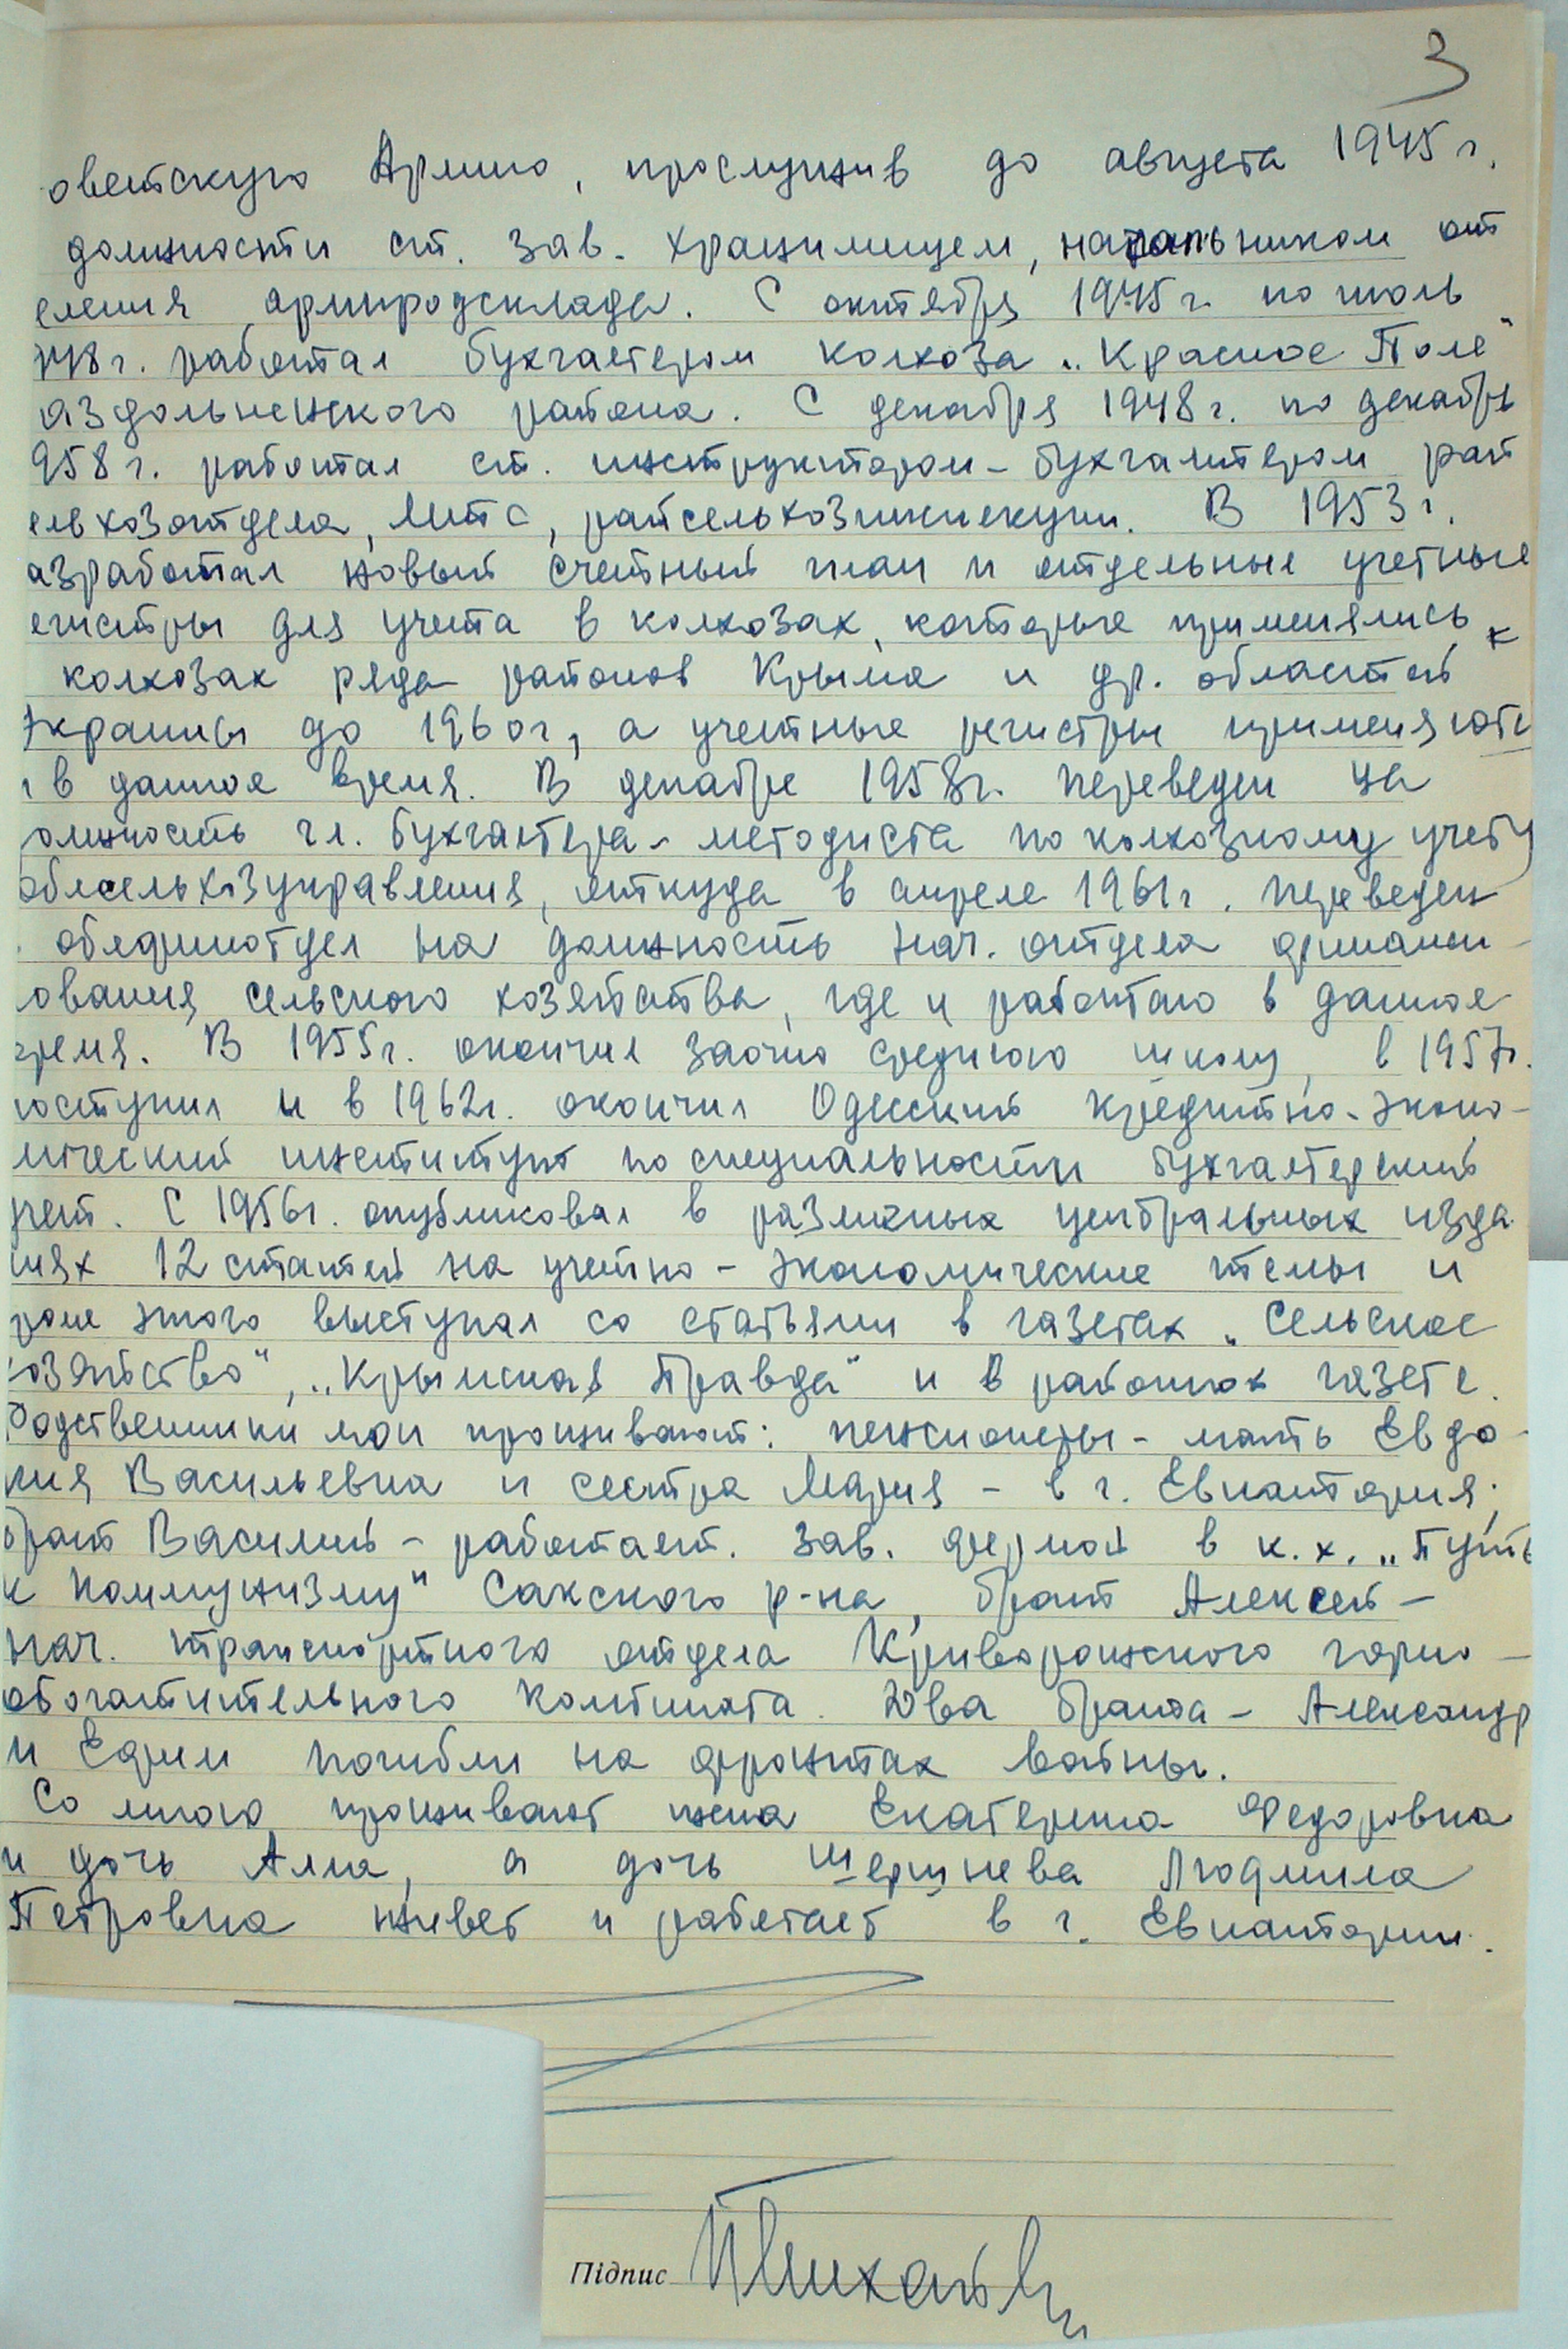 3
оветскую Армию, прослужив до августа 1945 г.
должности ст. зав. хранилищем, начальником от
еления армпродсклада. С октября 1945 г. по июль
948 г. работал бухгалтером колхоза „Красное Поле"
аздольненского района. С декабря 1948 г. по декабрь
958 г. работал ст. инструктором-бухгалтером рай
ельхозотдела, МТС, райсельхозинспекции. В 1953 г.
азработал новый счетный план и отдельные учетные
егистры для учета в колхозах, которые применялись
колхозах ряда районов Крыма и др. областей
Украины до 1960 г, а учетные регистры применяютс
и в данное время. В декабре 1958 г. переведен на
олжность гл. бухгалтера-методиста по колхозному учету
облсельхозуправления, откуда в апреле 1961 г. переведен
облфинотдел на должность нач. отдела финанси-
ования сельского хозяйства, где и работаю в данное
время. В 1955 г. окончил заочно среднюю школу, в 1957 г.
поступил и в 1962 г. окончил Одесский кредитно-эконо-
мический институт по специальности бухгалтерский
учет. С 1956 г. опубликовал в различных центральных изда
ниях 12 статей на учетно-экономические темы и
роме этого выступал со статьями в газетах „Сельское
хозяйство", „Крымская Правда" и в районной газете.
Родственники мои проживают: пенсионеры - мать Евдо-
кия Васильевна и сестра Мария - в г. Евпатория;
брат Василий - работает. зав. фермой в к.х. „Путь
к Коммунизму" Сакского р-на, брат Алексей -
нач. транспортного отдела Криворожского горно-
обогатительного комбината. Два брата - Александр
и Ефим погибли на фронтах войны.
Со мною проживают жена Екатерина Федоровна
и дочь Алла, а дочь Людмила
Петровна живет и работает в г. Евпатории.
Підпис